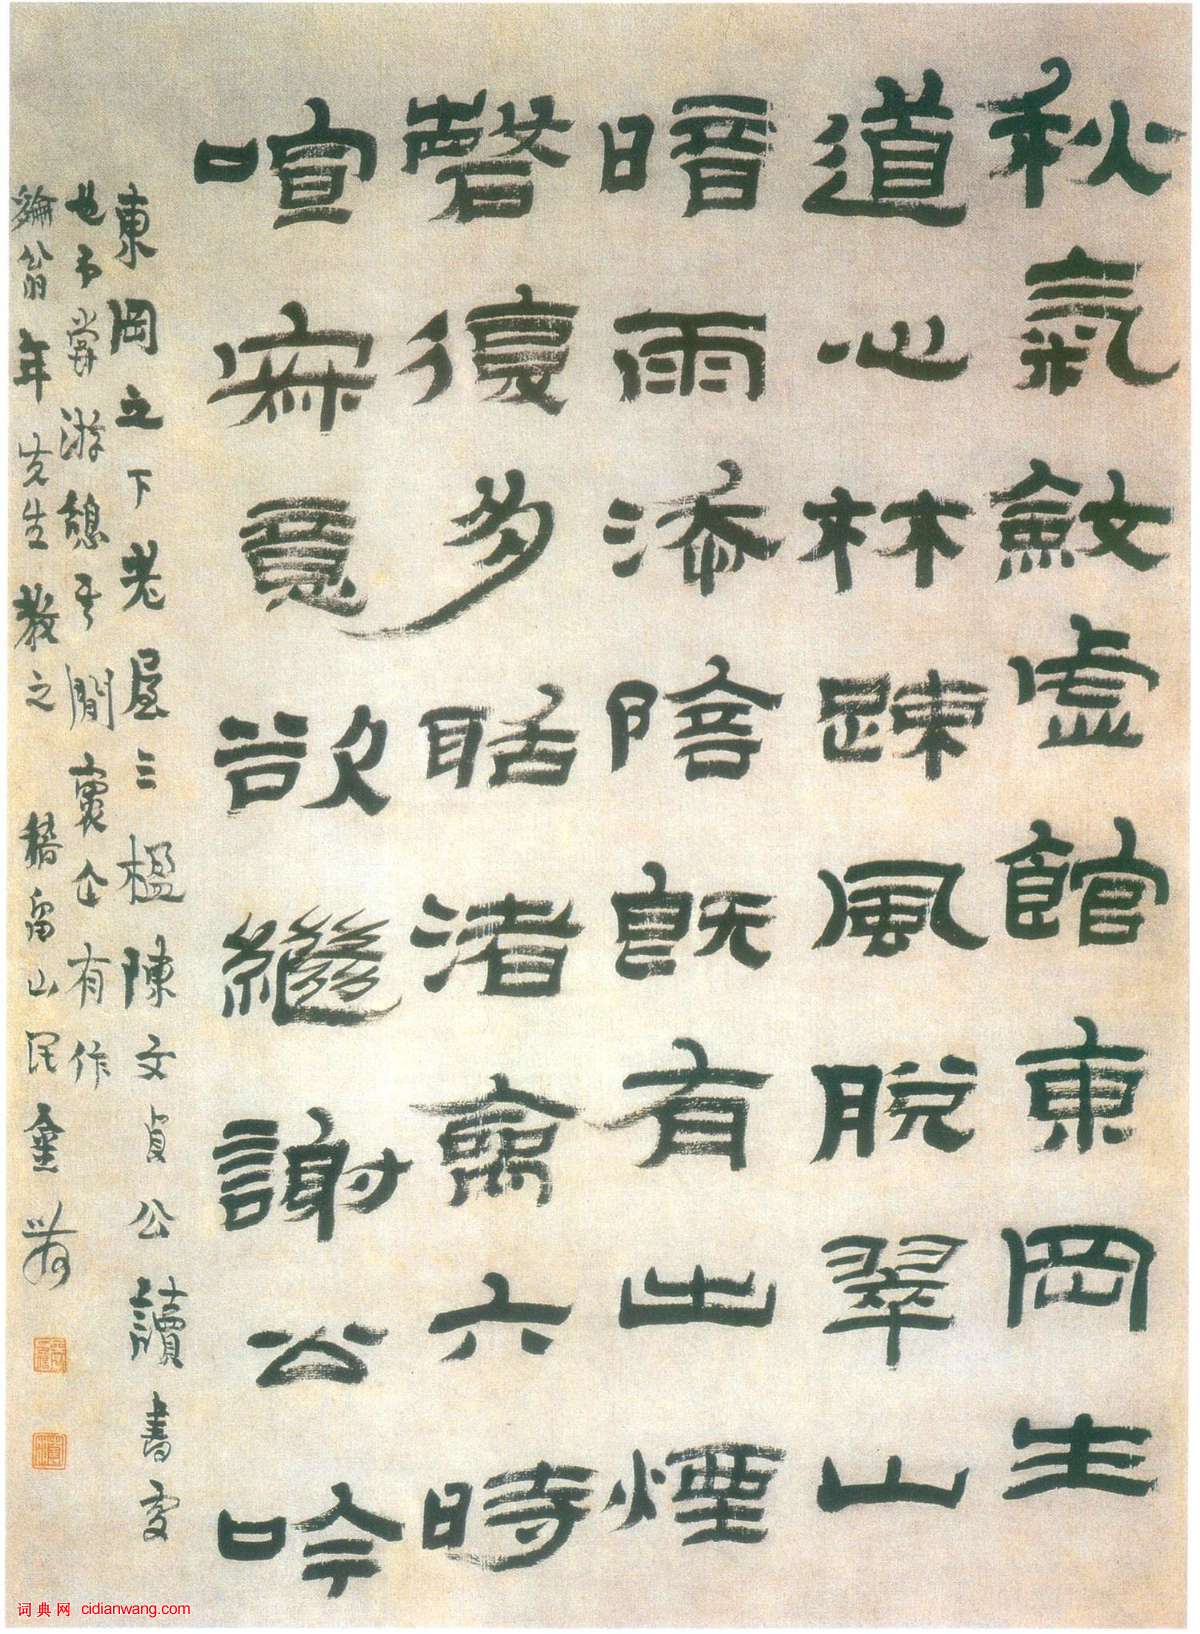 秋氣斂虛館東岡生
道心林疎風脫翠山
暗雨添陰既有出煙
磬復多聒渚禽六時
喧寂意欲繼謝公吟
東岡之下老屋三楹陳文貞公讀書處
也予嘗游憩其間裏企有作
綸翁年先生教之 耤留山民金農
词典网 cidianwang.com